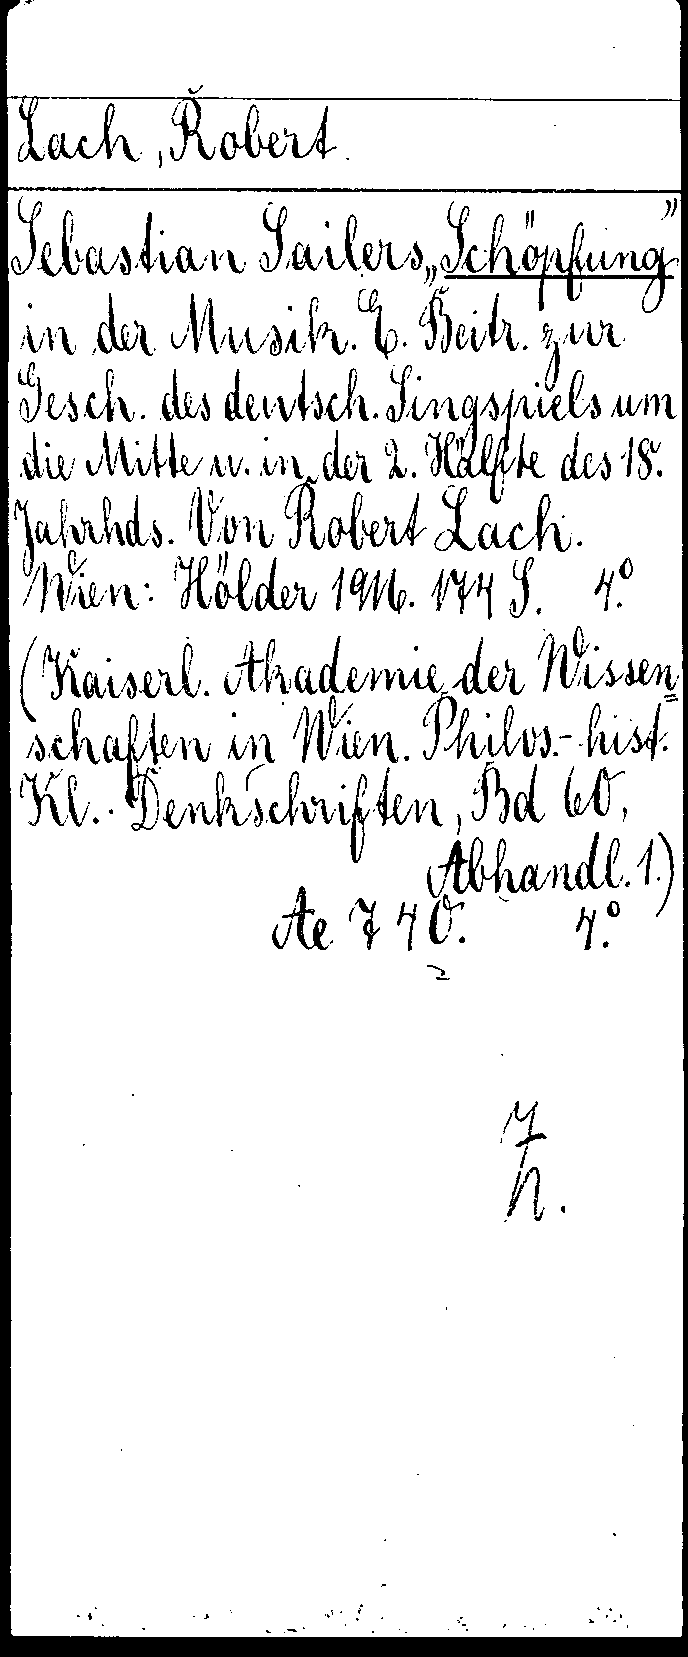 Lach, Robert.
Sebastian Sailers „Schöpfung”
in der Musik. E. Beitr. zur
Gesch. des deutsch. Singspiels um
die Mitte u. in der 2. Hälfte des 18.
Jahrhds. Von Robert Lach.
Wien: Hölder 1916. 174 S. 4°.
(Kaiserl. Akademie der Wissen=
schaften in Wien. Philos.-hist.
Kl. Denkschriften, Bd 60,
Abhandl. 1.)
Ae 7 40. 4°.